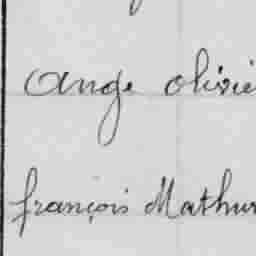 Ange olivie
françois Mathur